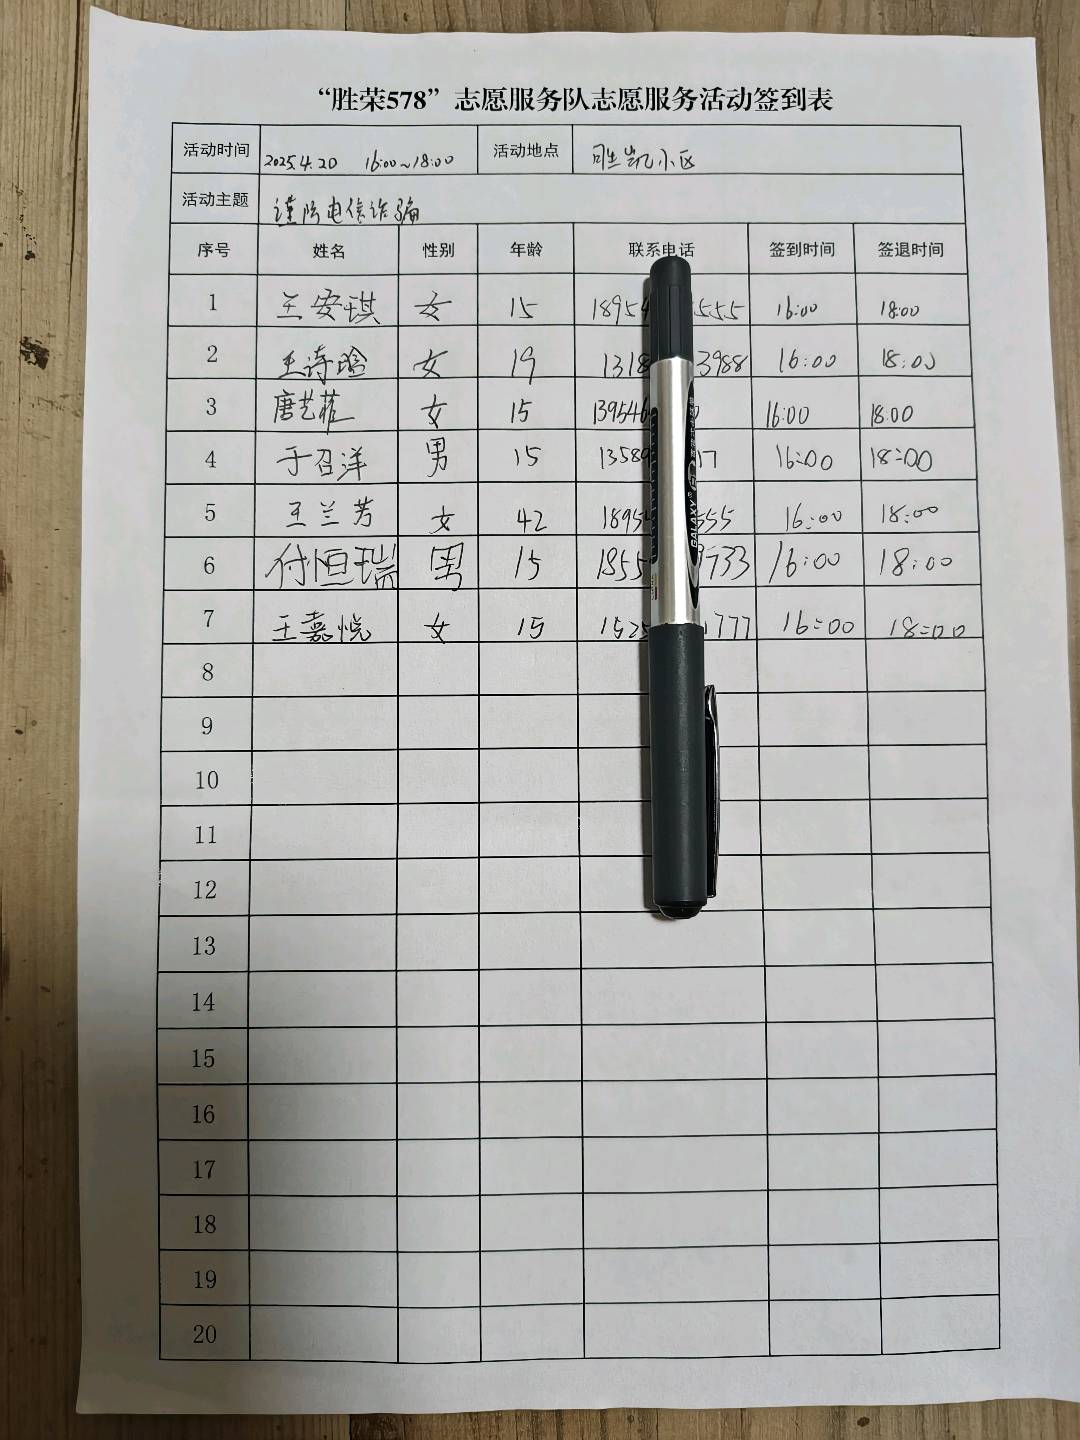 “胜荣578”志愿服务队志愿服务活动签到表
活动时间 2025.4.20 16:00~18:00 活动地点 胜凯小区
活动主题 谨防电信诈骗
序号 姓名 性别 年龄 联系电话 签到时间 签退时间
1 王安琪 女 15 18954 5555 16:00 18:00
2 王诗晗 女 19 1318 3988 16:00 18:00
3 唐艺菲 女 15 139546 0 16:00 18:00
4 于召洋 男 15 13589 17 16:00 18:00
5 王兰芳 女 42 18954 555 16:00 18:00
6 付恒瑞 男 15 1855 3733 16:00 18:00
7 王嘉悦 女 15 1525 1777 16:00 18:00
8
9
10
11
12
13
14
15
16
17
18
19
20
GALAXY